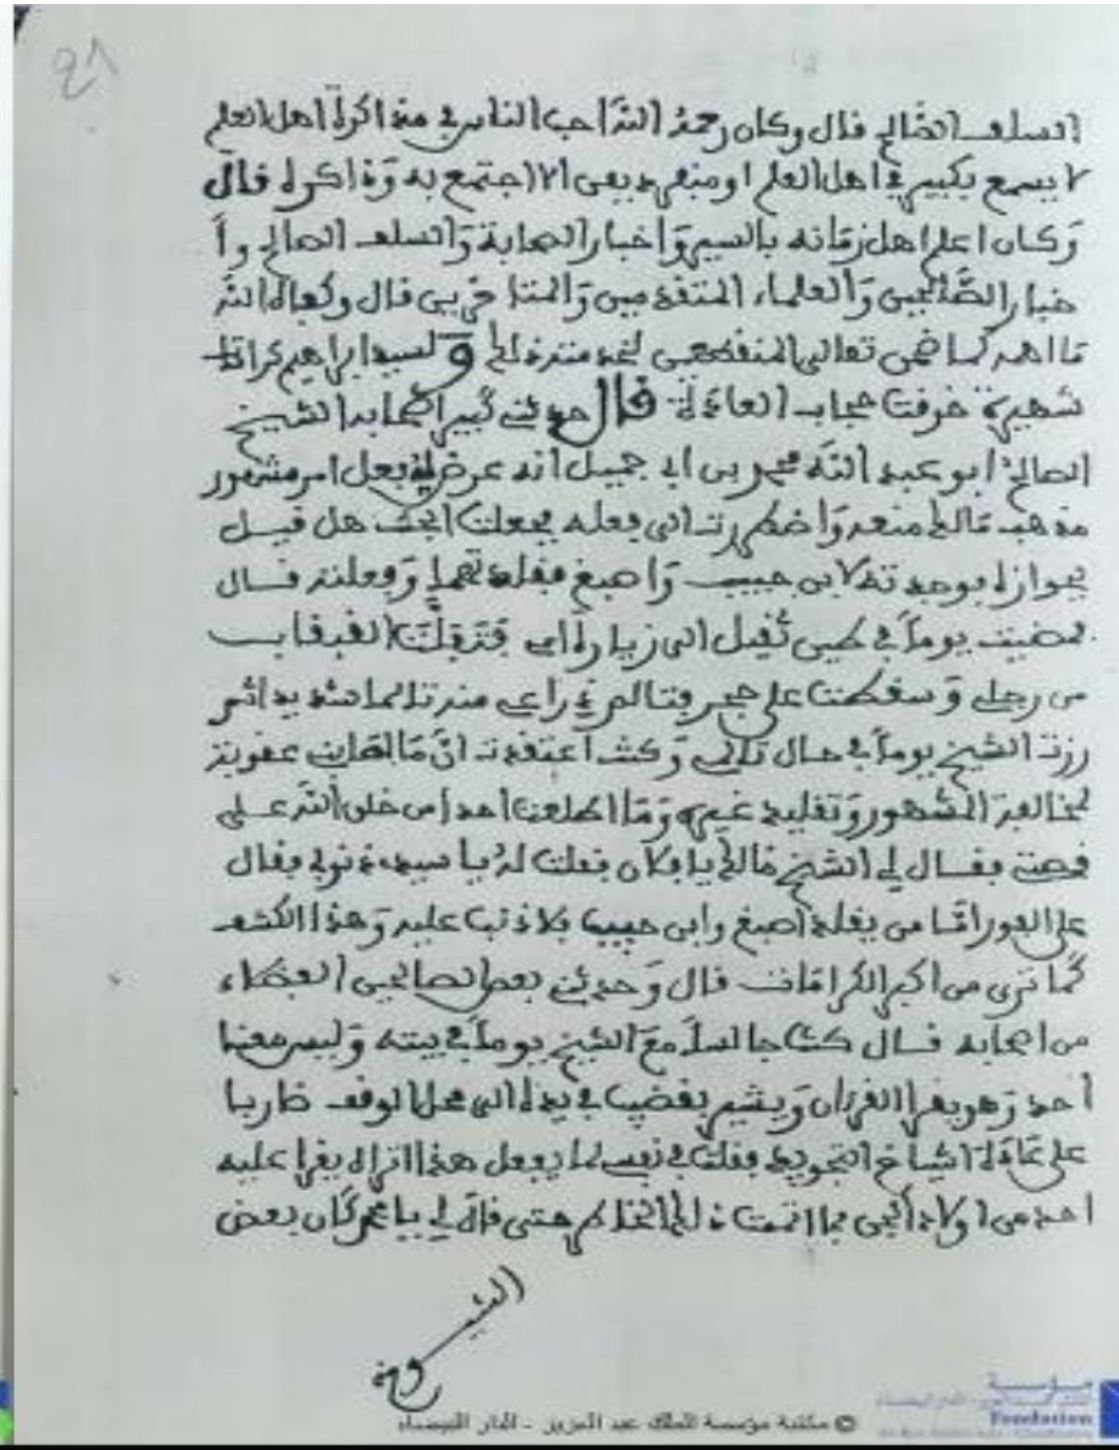 السلف الصالح قال وكان رحمه الله احب الناس في مذاكرة اهل العلم
لا يسمع بكبير في اهل العلم او منفرد بفن الا اجتمع به وذاكره قال
وكان اعلم اهل زمانه بالسير واخبار الصحابة والسلف الصالح وا
خبار الصالحين والعلماء المتقدمين والمتاخرين قال وكفاه الله
ما اهمه كما ضمن تعالى للمنقطعين لخدمته ذلك ولسيد ابراهيم كرامات
شهيرة خرقت حجاب العادة قال حدثني كبير اصحابه الشيخ
الصالح ابو عبد الله محمد بن ابي جميل انه عرض لي فعل امر مشهور
مذهب مالك منعه واضطررت الى فعله فجعلت ابحث هل قيل
بجوازه فوجدته لابن حبيب واصبغ فقلدتهما وفعلته قال
فمضيت يوما في طين ثقيل الى زيارة امي فتقلت القبقاب
من رجلي وسقطت على حجر فتالم ذراعي منه تالما شديدا ثم
زرت الشيخ يوما في حال تالمي وكنت اعتقدت ان ما اصابني عقوبة
لمخالفة المشهور وتقليد غيره وما اطلعت احدا من خلق الله على
قصتي فقال لي الشيخ مالك يا فلان فقلت له يا سيدي ذنوبي فقال
على الفور اما من يقلد اصبغ وابن حبيب فلا ذنب عليه وهذا الكشف
كما ترى من اكبر الكرامات قال وحدثني بعض الصالحين الفضلاء
من اصحابه قال كنت جالسا مع الشيخ يوما في بيته وليس معنا
احد وهو يقرا القرءان ويشير بقضيب في يده الى محل الوقف ضاربا
على عادة اشياخ التجويد فقلت في نفسي لما يفعل هذا اتراه يقرا عليه
احد من اولاد الجن فما اتممت ذلك الخاطر حتى قال لي يا محمد كان بعض
الشيوخ
© مكتبة مؤسسة الملك عبد العزيز - الدار البيضاء
مؤسسة
Fondation